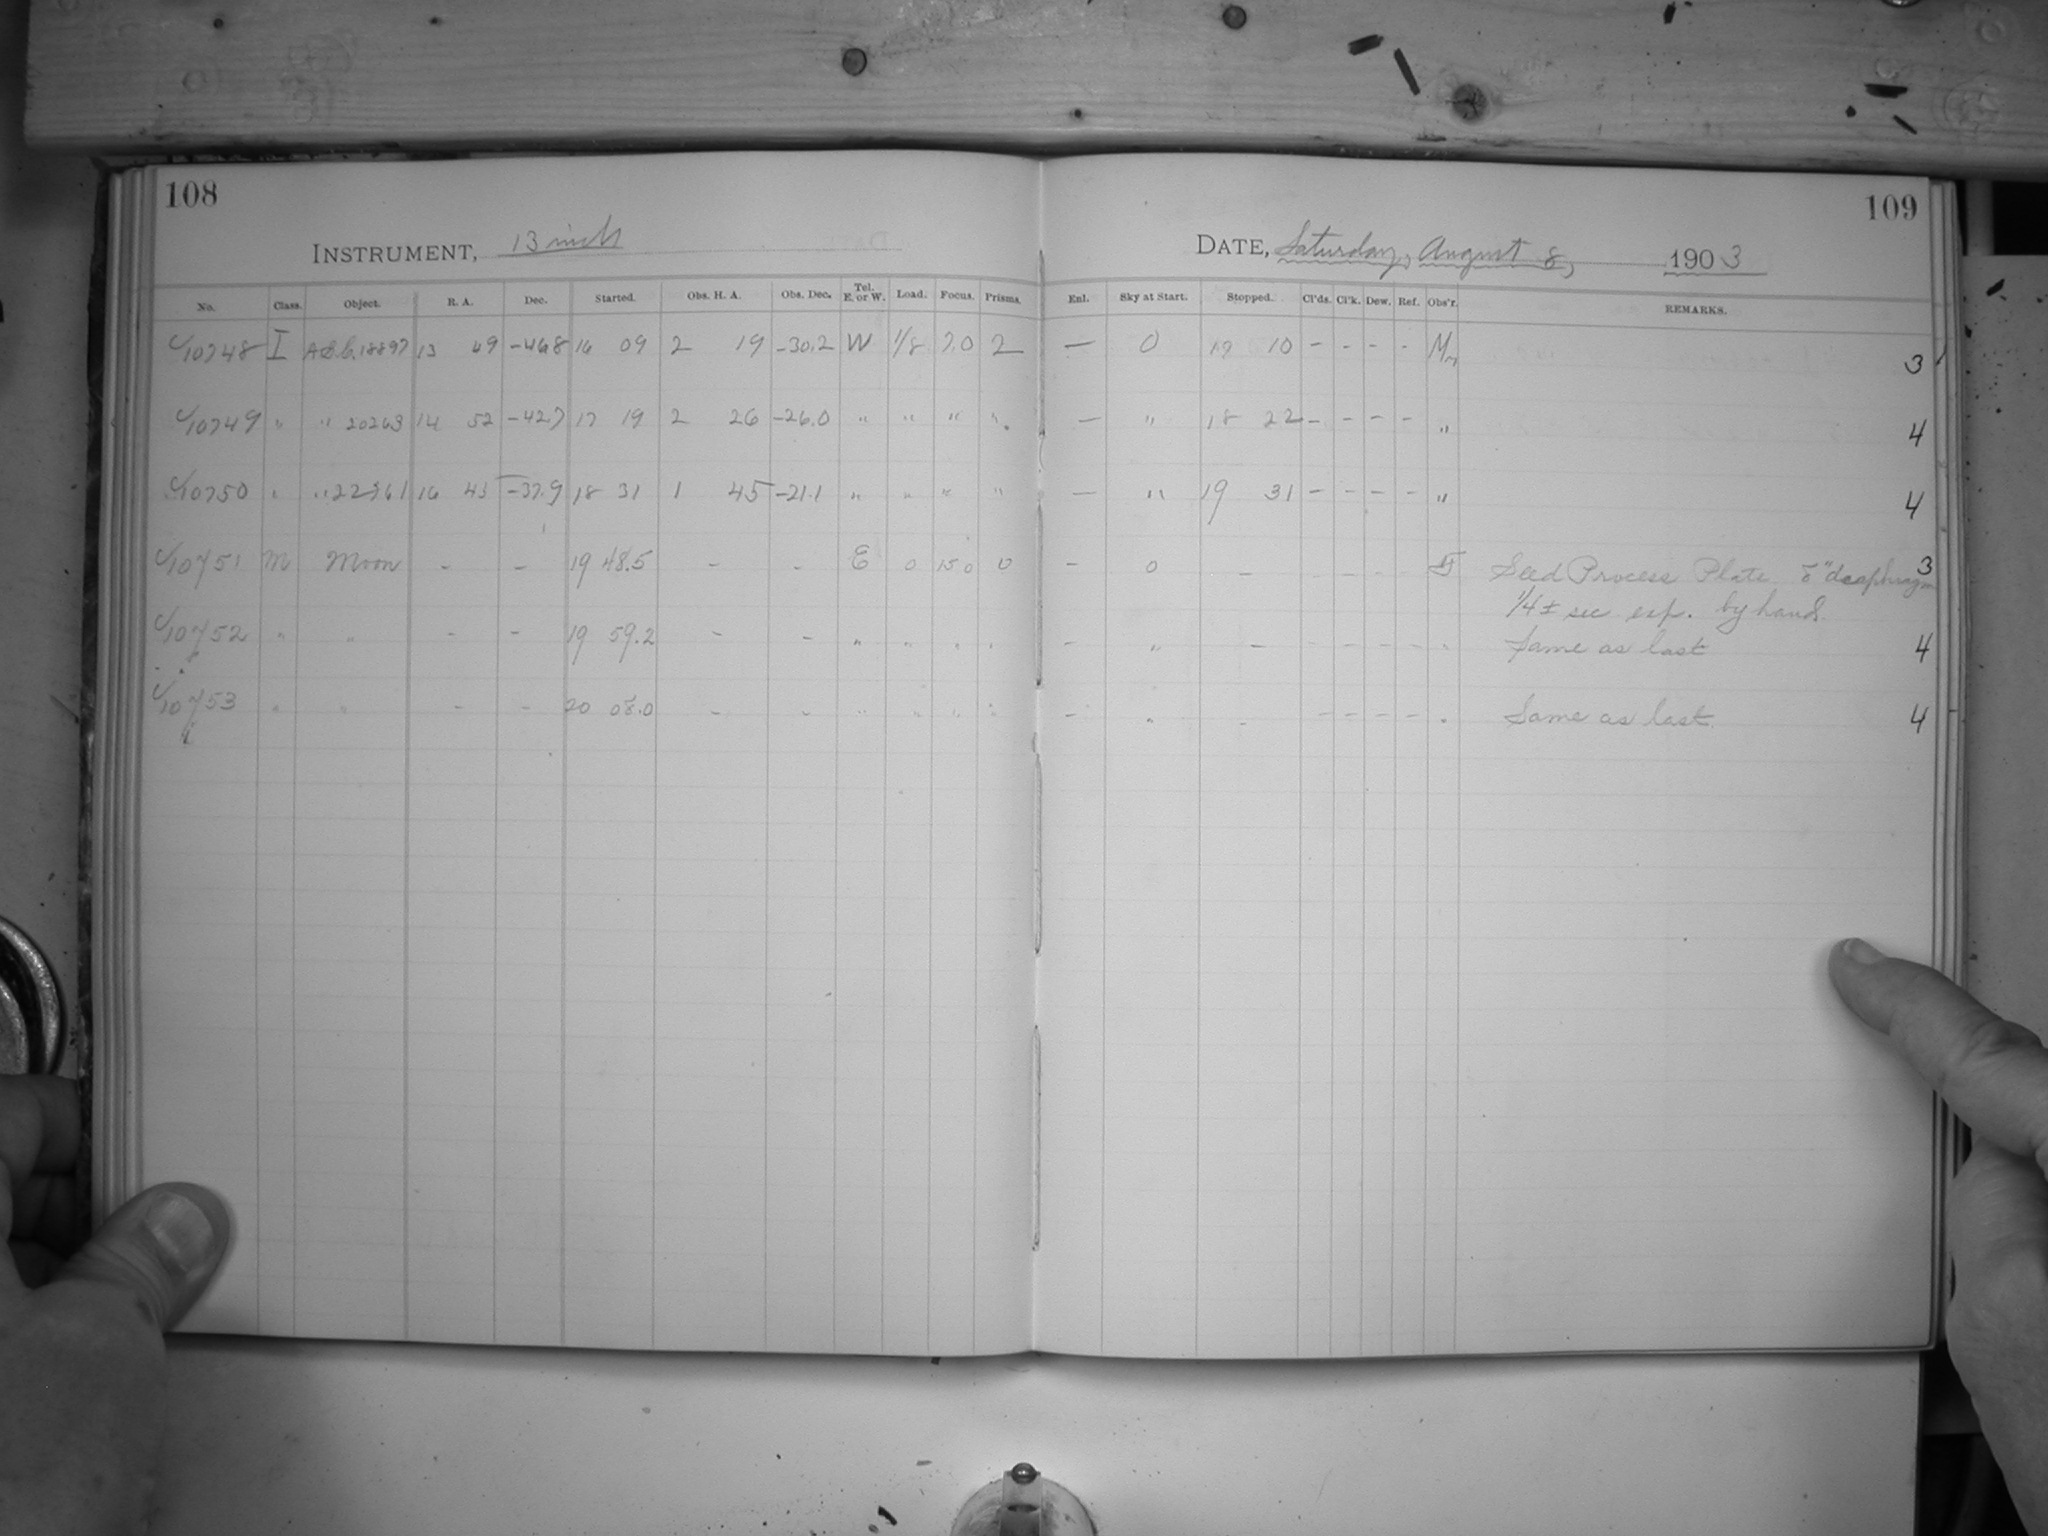 108
109
INSTRUMENT, 13 inch
DATE, Saturday, August 8, 1903
No. Class. Object. R. A. Dec. Started. Obs. H. A. Obs. Dec. Tel. E. or W. Load. Focus. Prisms. Enl. Sky at Start. Stopped. Cl'ds. Cl'k. Dew. Ref. Obs'r. REMARKS.
C10748 I A.G.C. 18897 13 49 -46.8 16 09 2 19 -30.2 W 1/8 7.0 2 — 0 17 10 - - - - 3
C10749 " " 20263 14 52 -42.7 17 19 2 26 -26.0 " " " " — " 18 22 - - - - " 4
C10750 " " 22761 16 45 -37.9 18 31 1 45 -21.1 " " " " — " 19 31 - - - - " 4
C10751 M Moon - - 19 48.5 - - E 0 15.0 0 - 0 - - - - Seed Process Plate 5" diaphragm 3
1/4± sec exp. by hand
C10752 " " - - 19 59.2 - - " " " " - " - - - - - " Same as last 4
C10753 " " - - 20 08.0 - - " " " " - " - - - - - " Same as last. 4